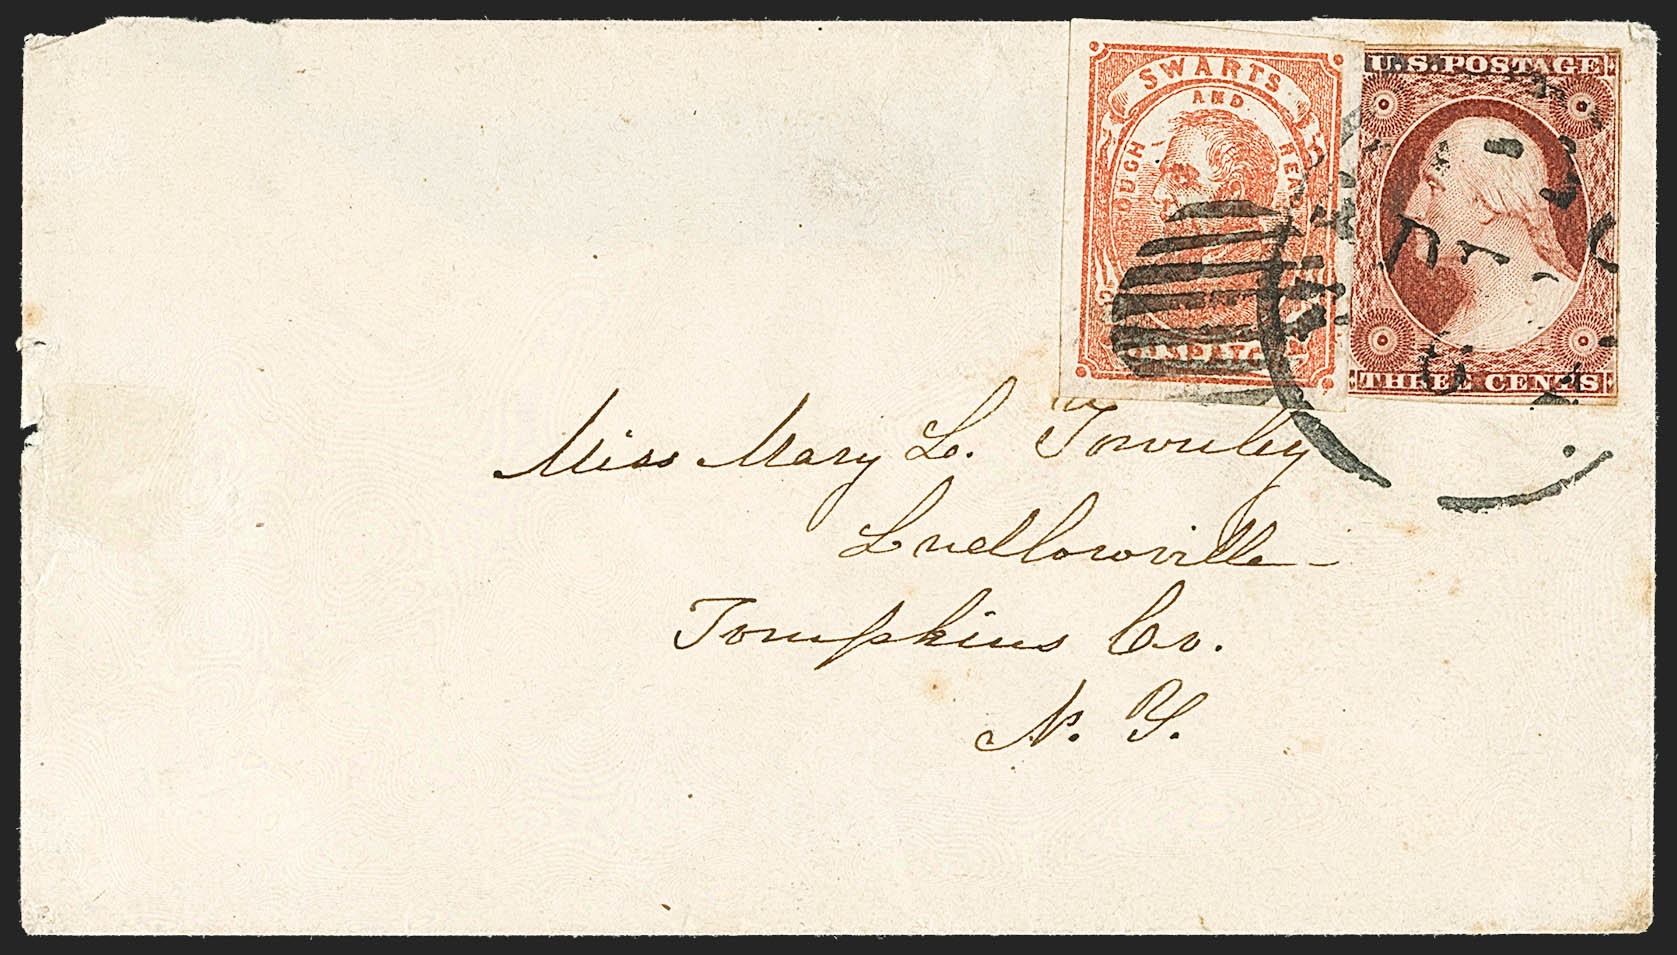 SWARTS
AND
OUGH
REA
U.S. POSTAGE
THREE CENTS
Miss Mary L. Townley
Ludlowville
Tompkins Co.
N. Y.